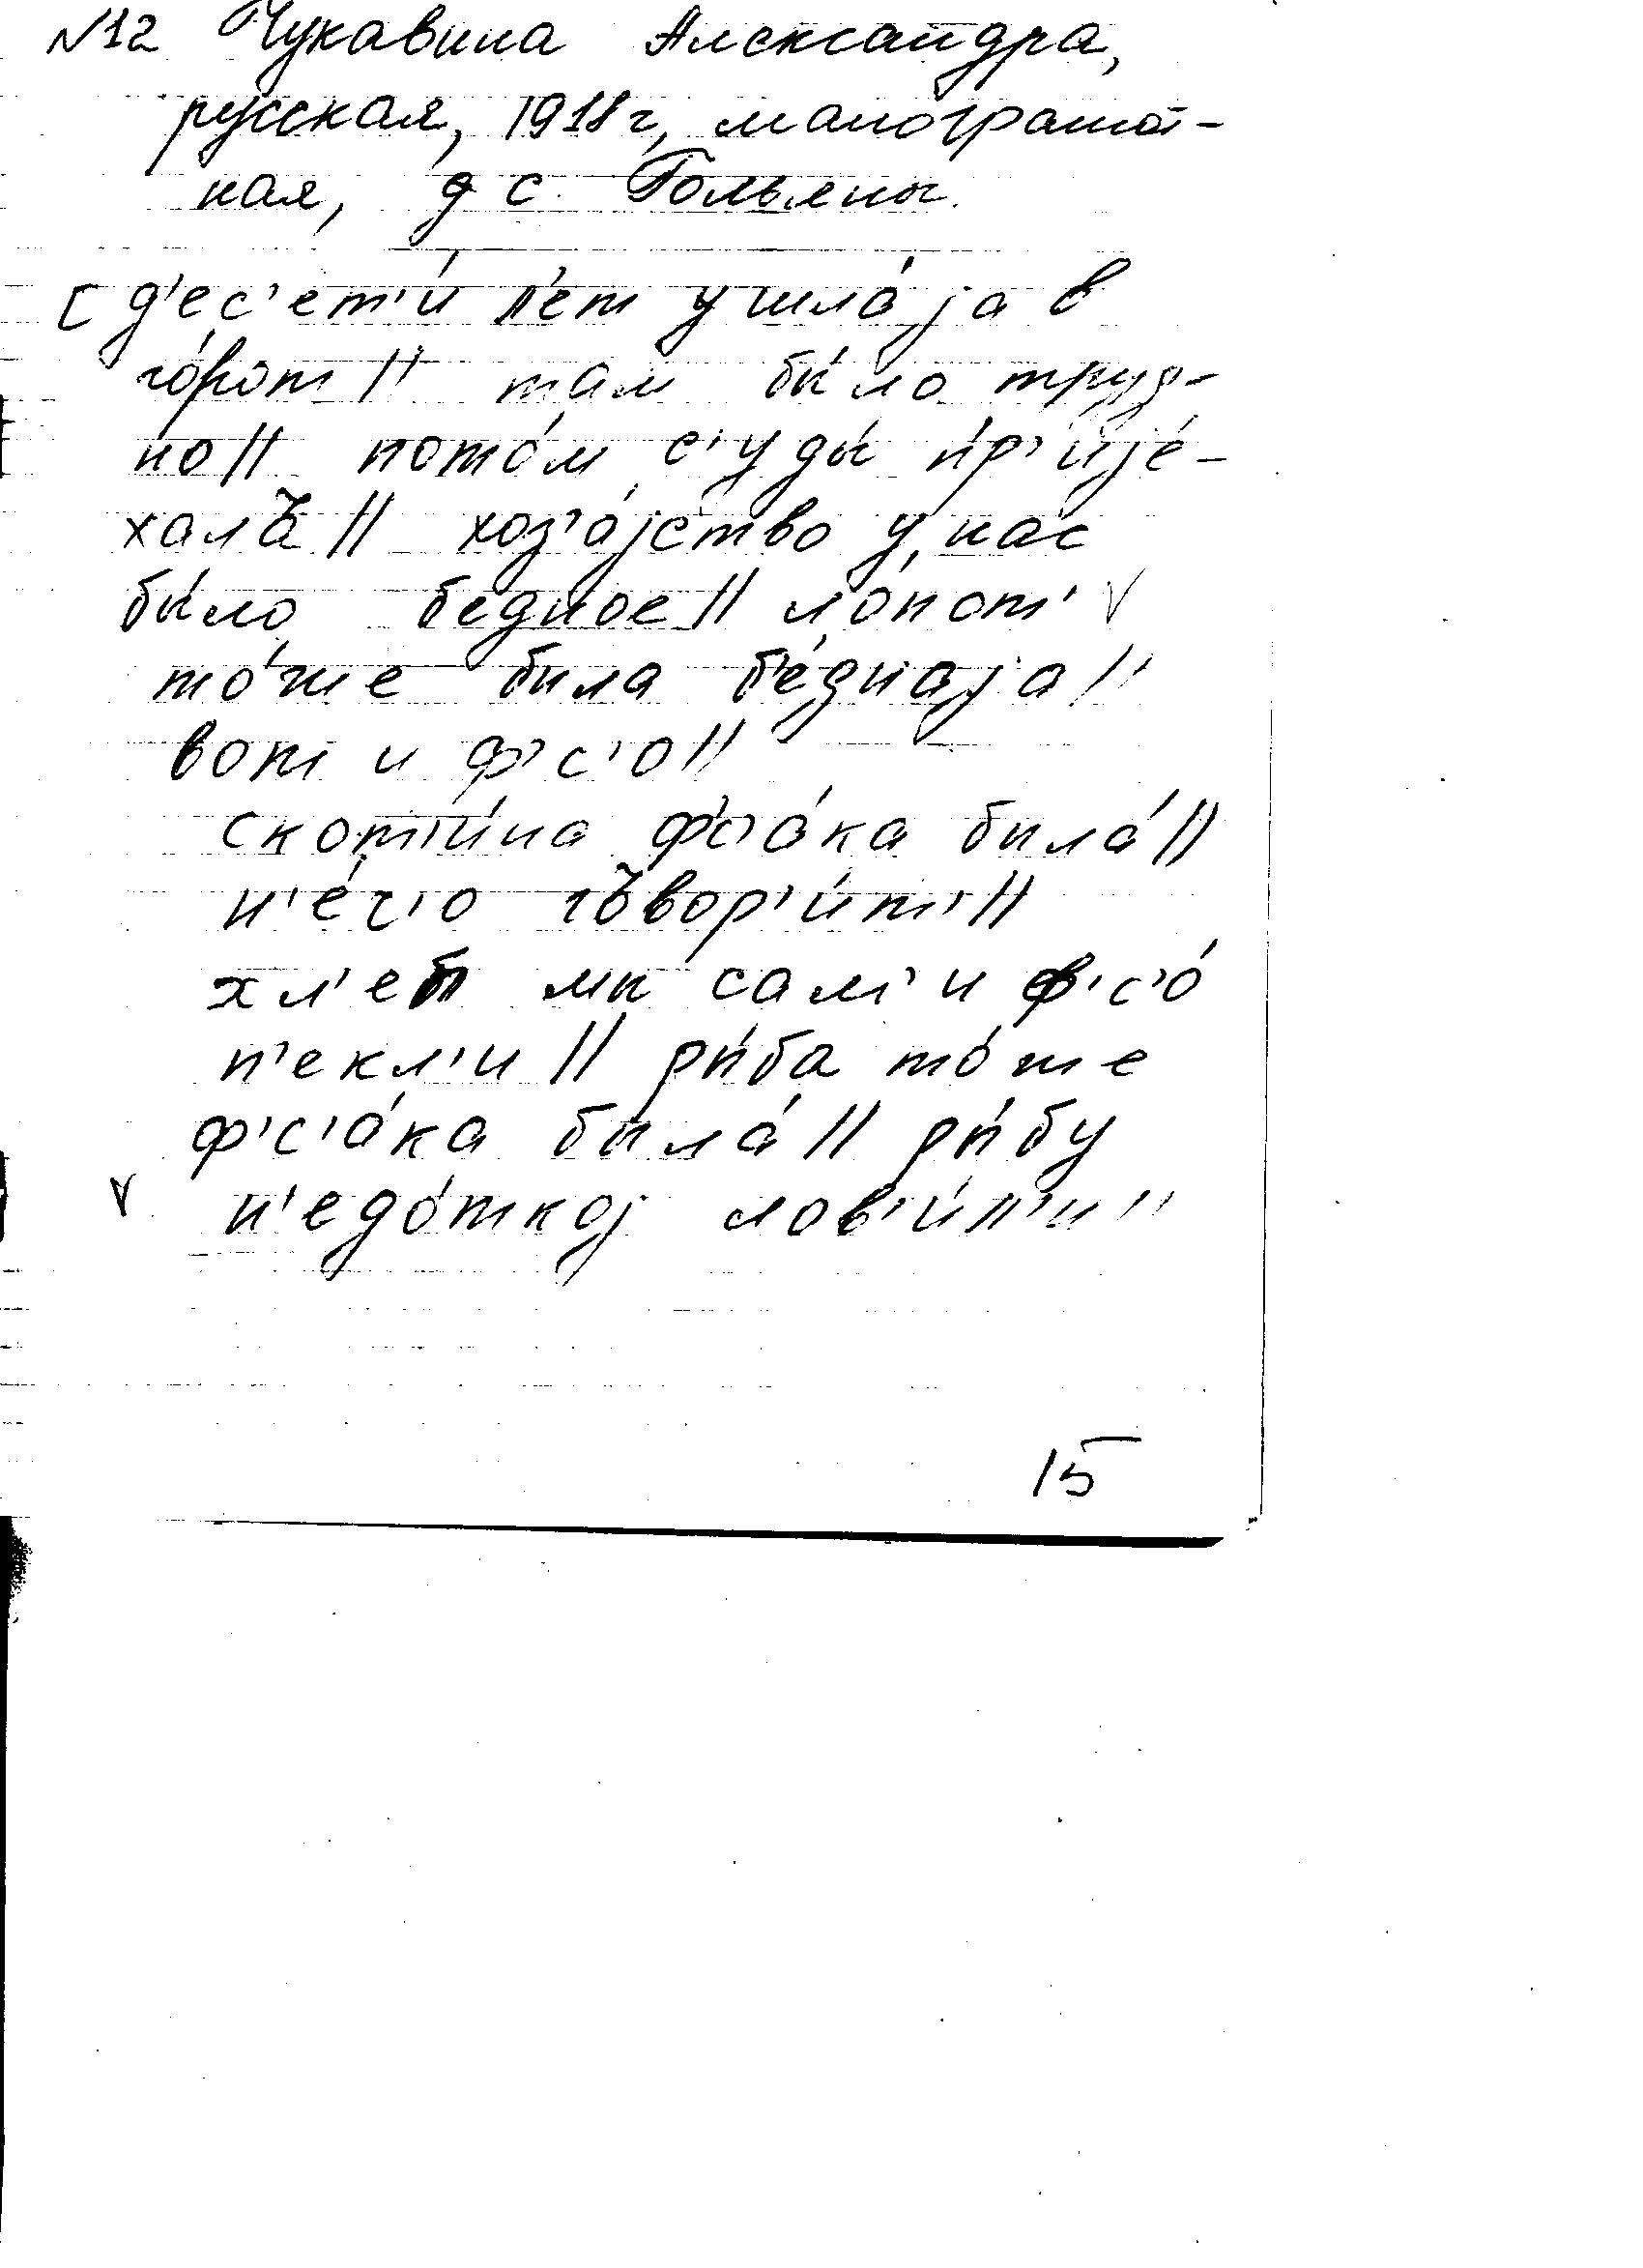 №12 Чукавина Александра,
русская, 1918 г, малограмот-
ная, д с. Гольяны.
[д'ес'ет'и́ л'ет ушла́ jа в
го́рот // там бы́ло труд-
но // пото́м с'уды́ пр'иjе́-
халъ // хоз'а́jство у нас
бы́ло бедное // ло́пот' V
то́же была б'е́днаjа //
вот и ф'с'о //
скот'и́на ф'с'а́ка была́ //
н'е́ч'о гъвор'и́т' //
хл'еб мы сам'и ф'с'о́
п'екл'и // ры́ба то́же
ф'с'а́ка была́ // ры́бу
V н'едо́ткоj лов'и́л'и //
15